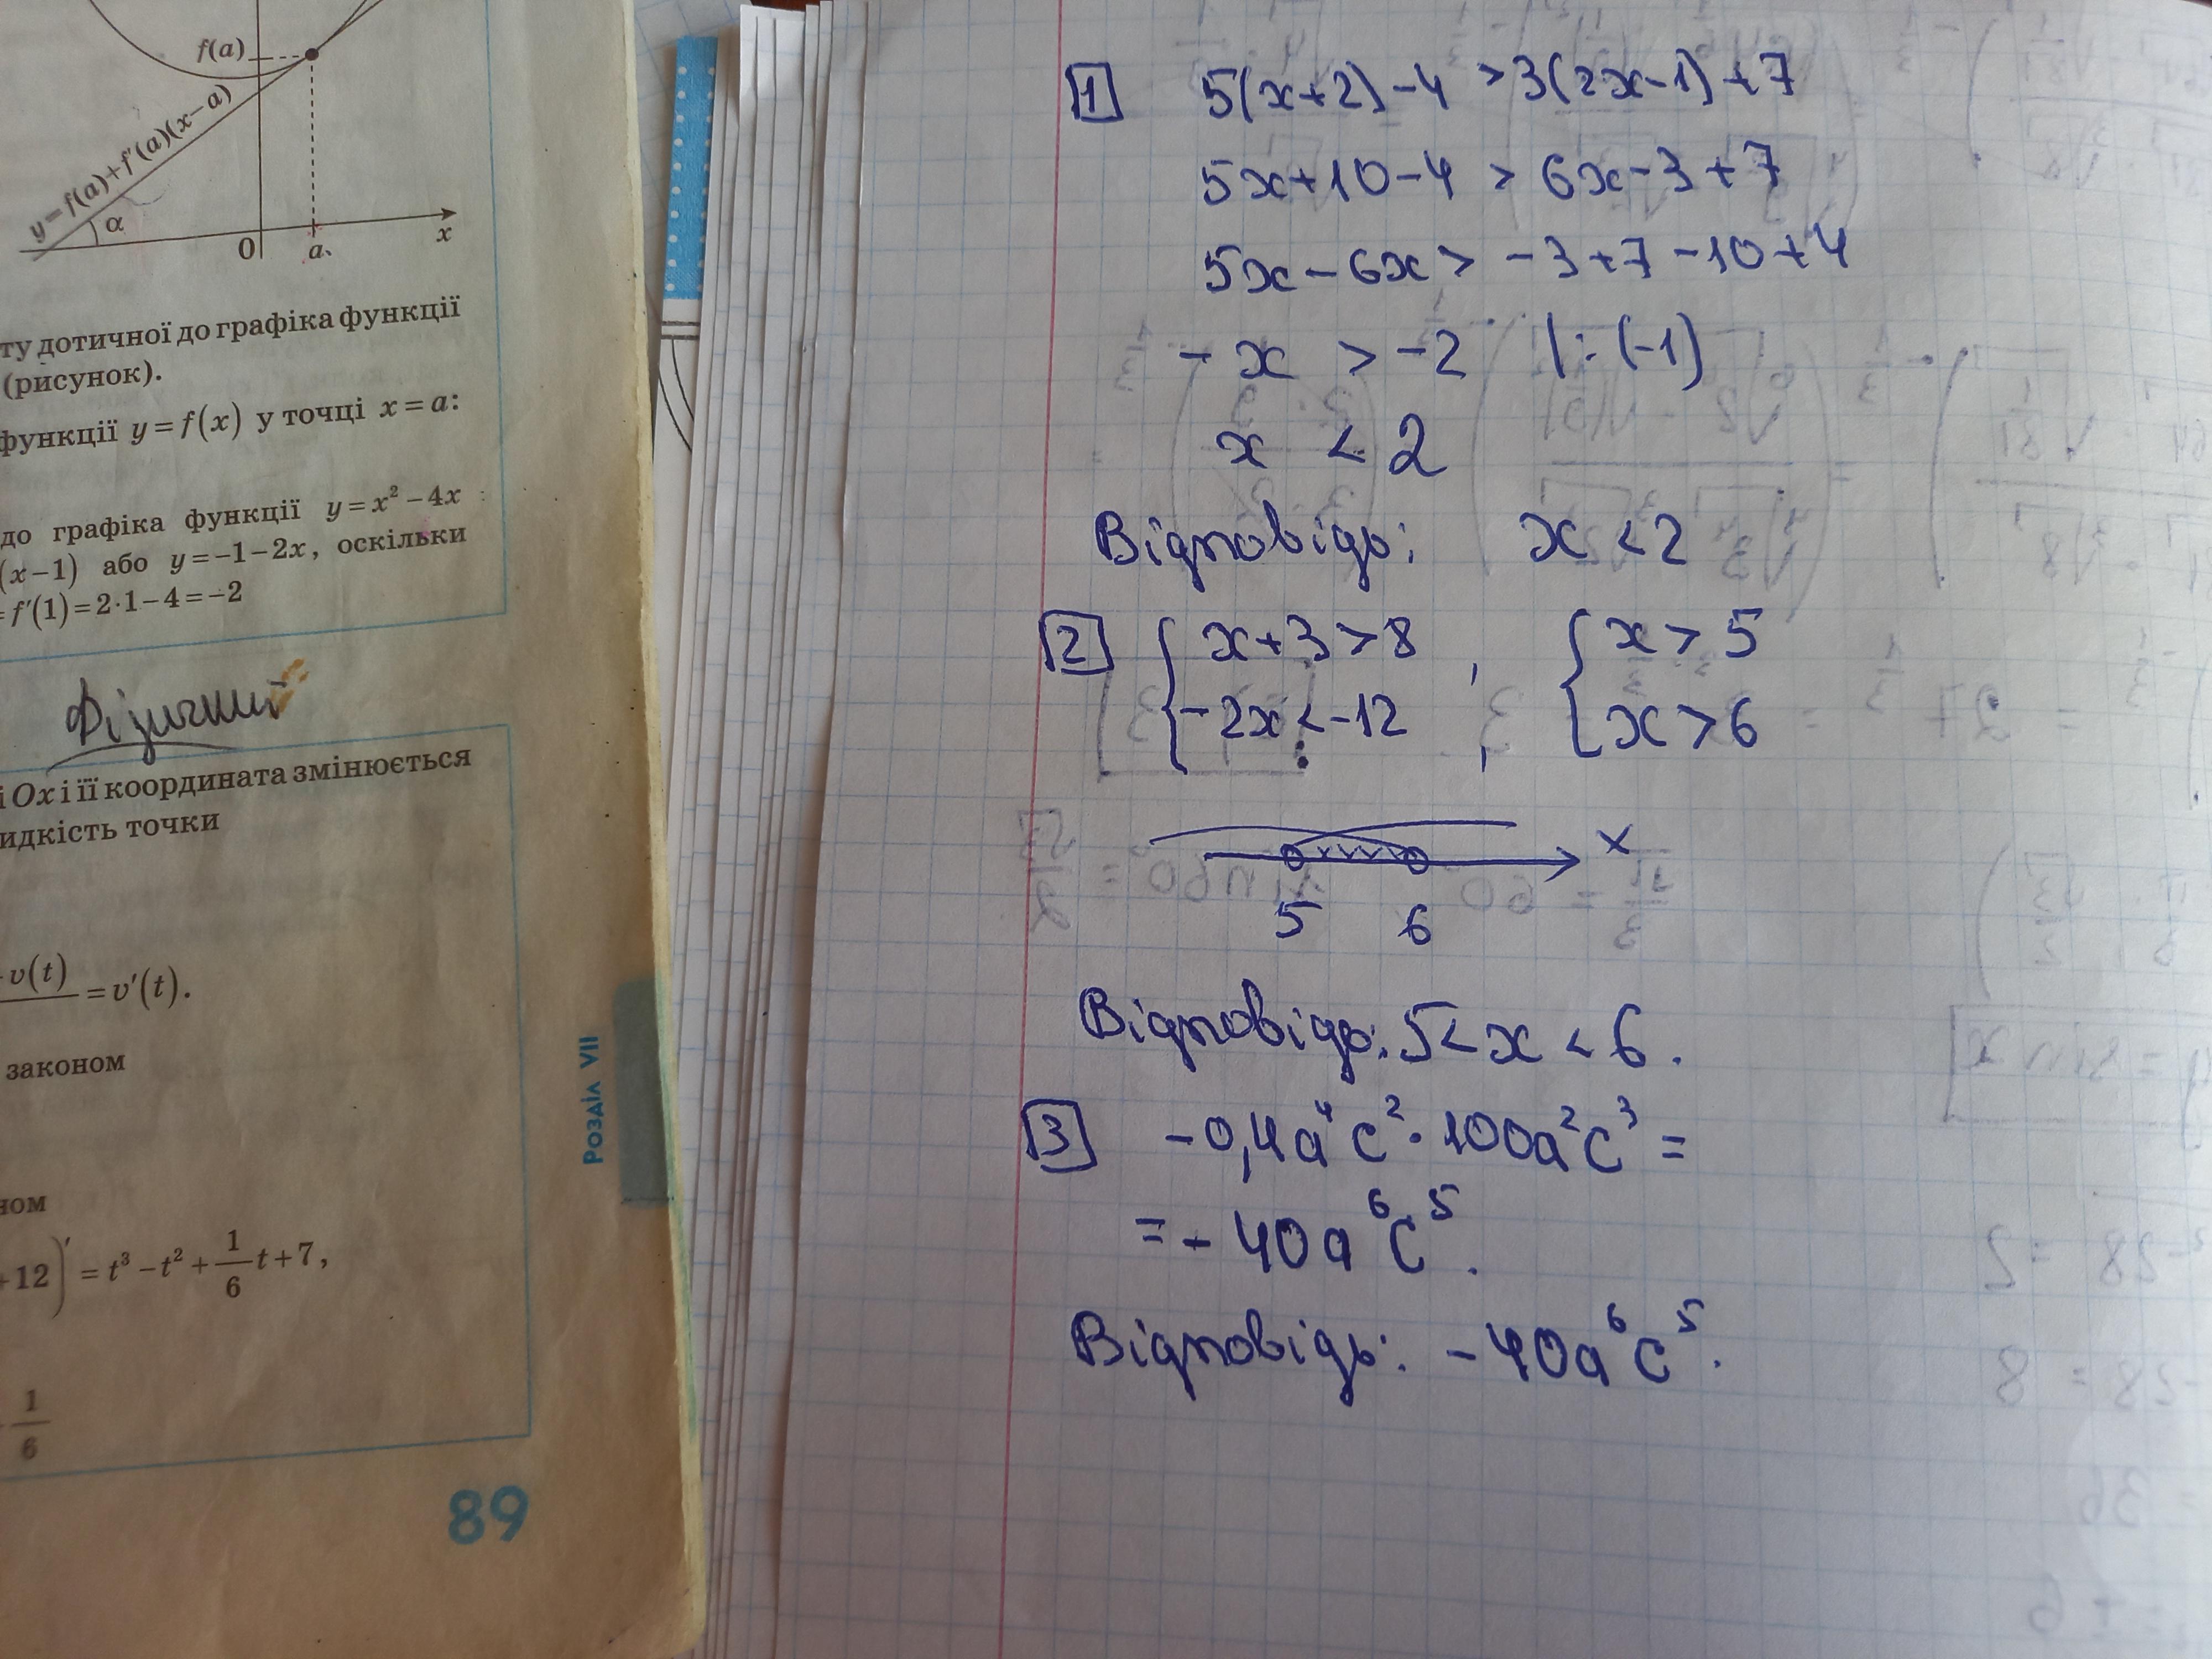 f(a)
y=f(a)+f'(a)(x−a)
α
0
a
x
ту дотичної до графіка функції
(рисунок).
функції y=f(x) у точці x=a:
до графіка функції y=x²−4x
(x−1) або y=−1−2x, оскільки
=f'(1)=2·1−4=−2
Фізичний
і Ox і її координата змінюється
идкість точки
v(t)
=v'(t).
законом
ном
+12)' = t³−t²+1/6 t+7,
1/6
Розділ VII
89
1 5(x+2)-4 >3(2x-1)+7
5x+10-4 > 6x-3+7
5x-6x > -3+7-10+4
-x > -2 |:(-1)
x < 2
Відповідь: x < 2
2 { x+3>8 , { x > 5
-2x<-12 , x > 6
x
5 6
Відповідь: 5 < x < 6.
3 -0,4a⁴c²·100a²c³ =
= -40a⁶c⁵.
Відповідь: -40a⁶c⁵.